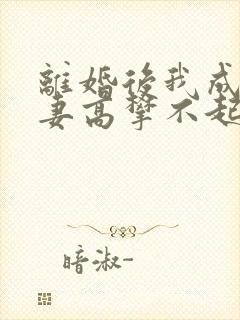 離婚後我成
妻高攀不起
暗淑-